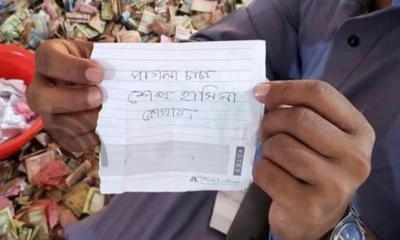 পাগলা চাচা
শেখ হাসিনা
কোথায়.